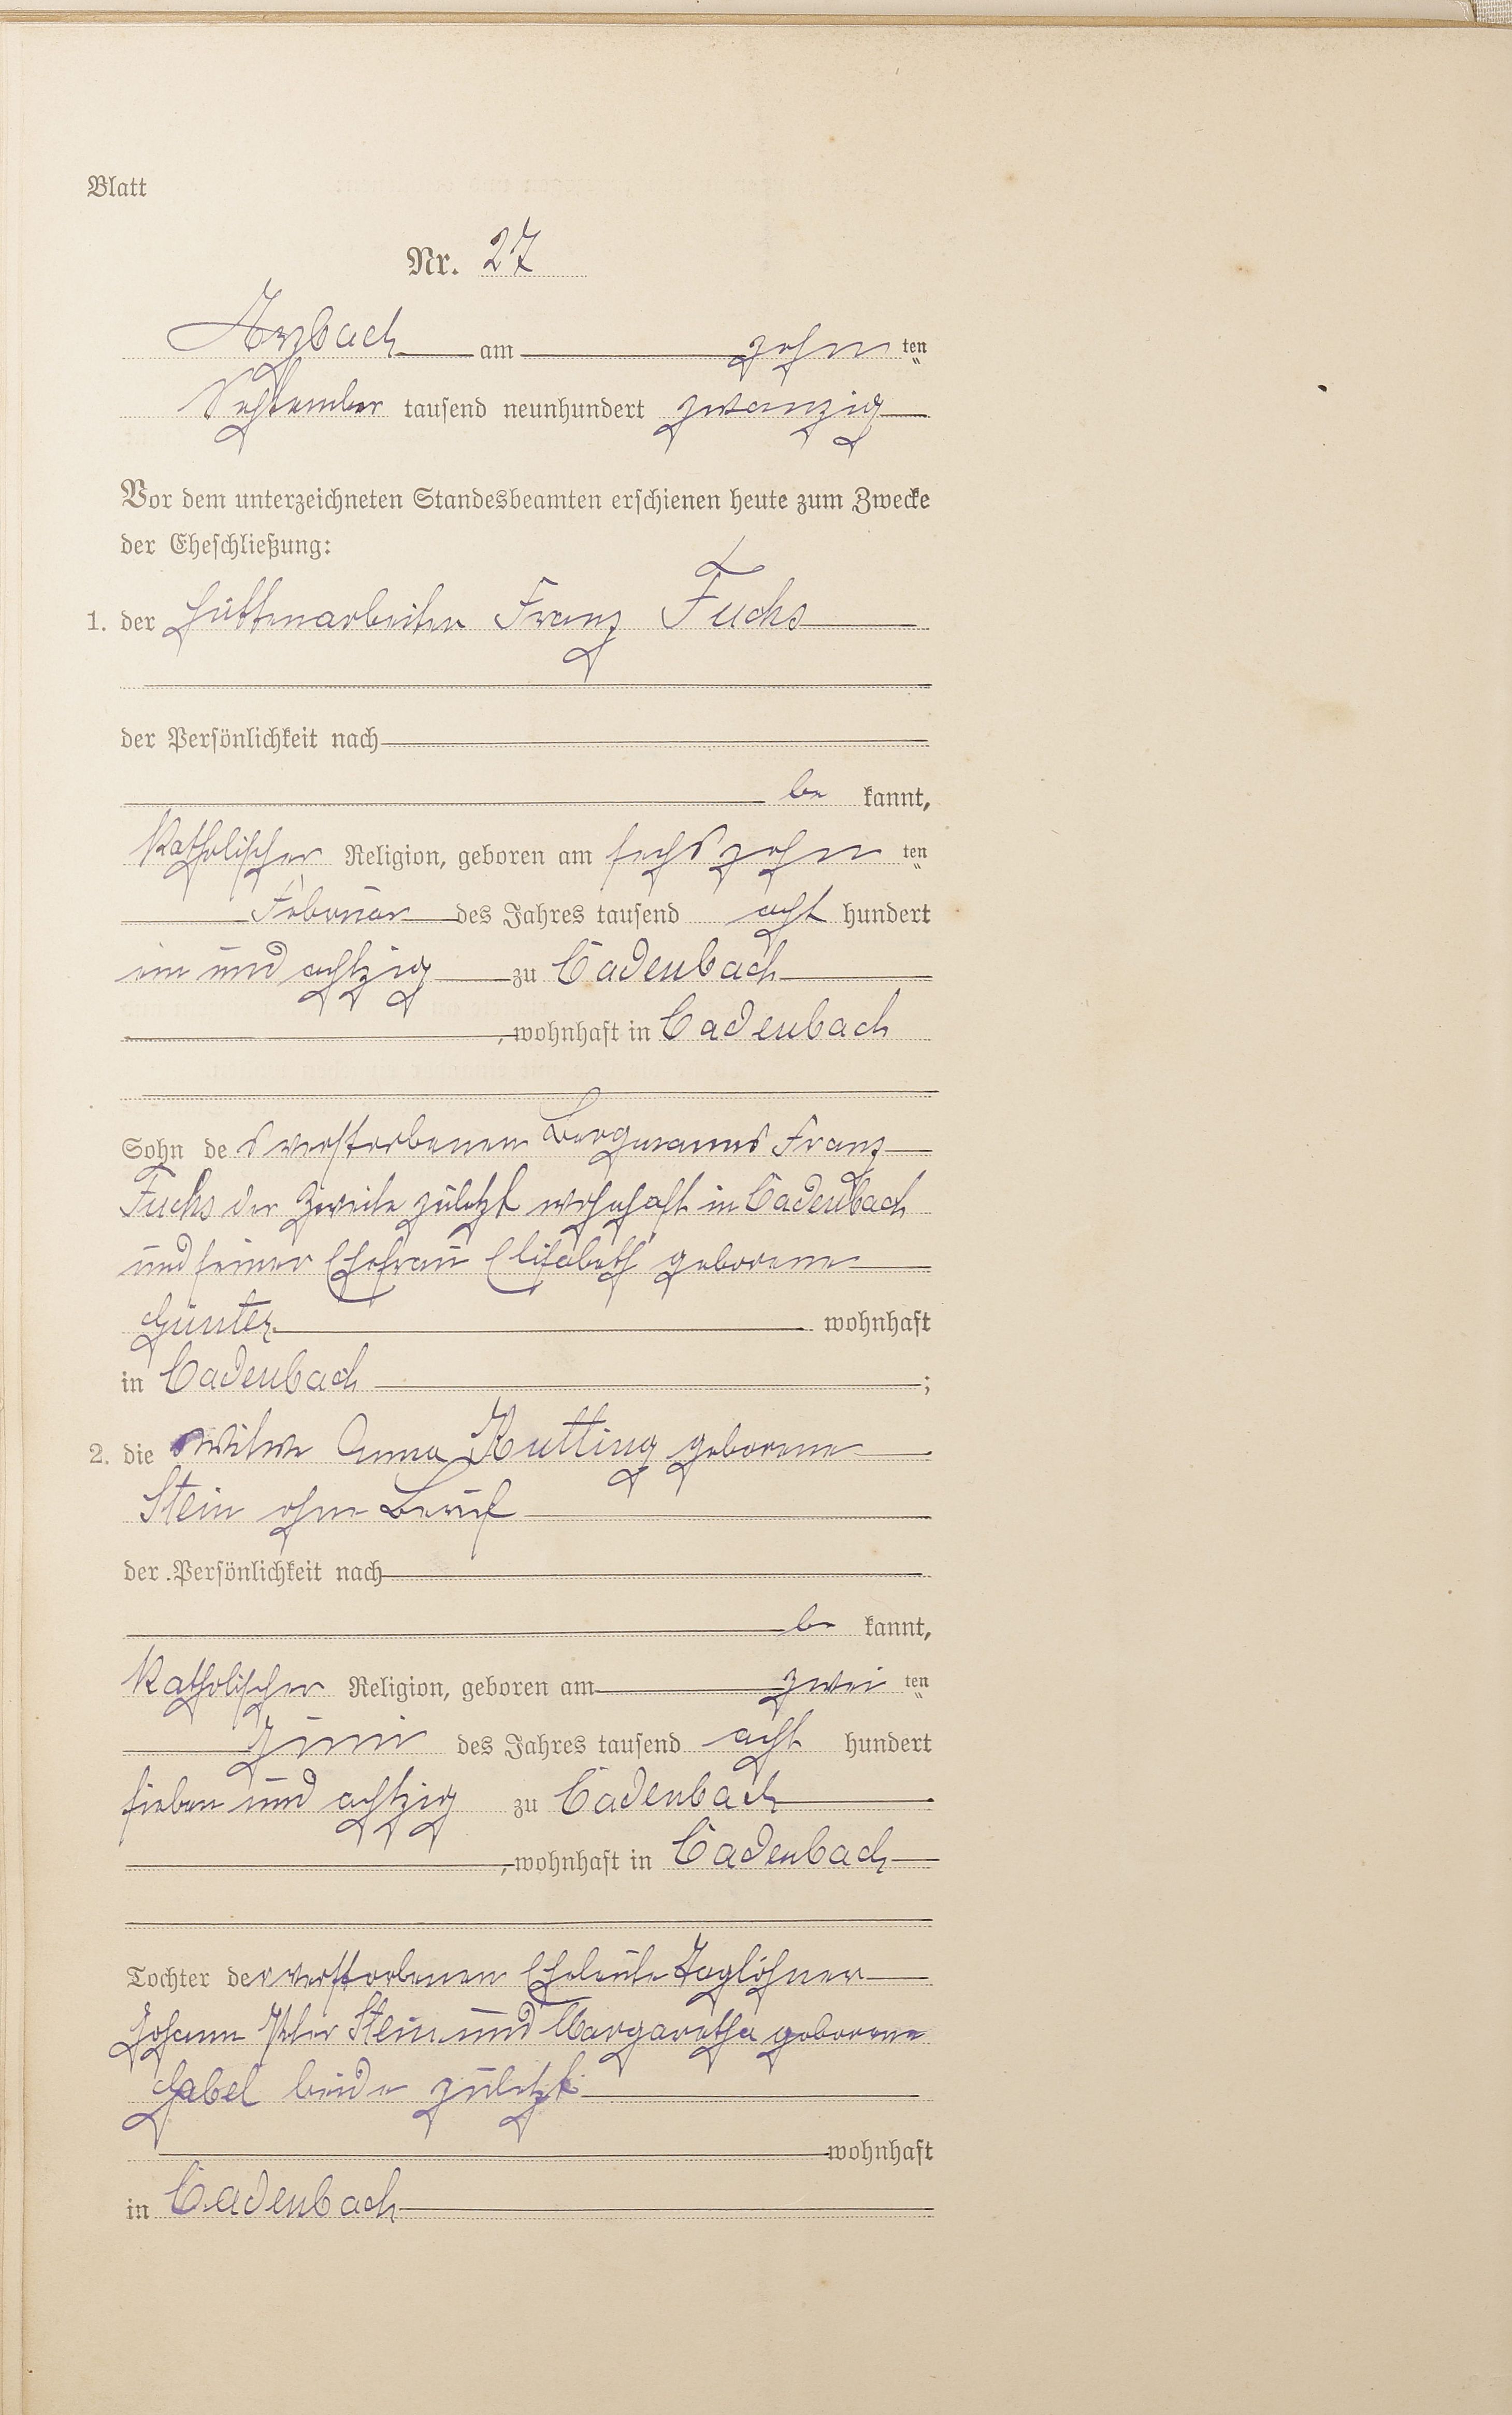 Blatt
Nr. 27
Arzbach am zehn ten
September tausend neunhundert zwanzig
Vor dem unterzeichneten Standesbeamten erschienen heute zum Zwecke
der Eheschließung:
1. der Hüttenarbeiter Franz Fuchs
der Persönlichkeit nach
be kannt,
Katholischer Religion, geboren am sechszehn ten
Februar des Jahres tausend acht hundert
ein und achtzig zu Cadenbach
, wohnhaft in Cadenbach
Sohn des verstorbenen Bergmanns Franz
Fuchs der Zweite zuletzt wohnhaft in Cadenbach
und seiner Ehefrau Elisabeth geborene
Günter wohnhaft
in Cadenbach ;
2. die Witwe Anna Kutting geborene
Stein ohne Beruf
der Persönlichkeit nach
be kannt,
Katholischer Religion, geboren am zwei ten
Juni des Jahres tausend acht hundert
sieben und achtzig zu Cadenbach
, wohnhaft in Cadenbach
Tochter der verstorbenen Eheleute Taglöhner
Johann Peter Stein und Margaretha geborene
Gabel beide zuletzt
wohnhaft
in Cadenbach